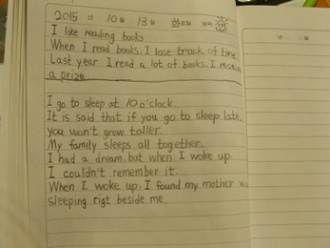 2015 년 10 월 13 일 화요일
I like reading books.
When I read books, I lose track of time.
Last year I read a lot of books. I
a prize.
I go to sleep at 10 o'clock.
It is said that if you go to sleep late,
you won't grow taller.
My family sleeps all together.
I had a dream, but when I woke up,
I couldn't remember it.
When I woke up, I found my mother
sleeping rigt beside me.